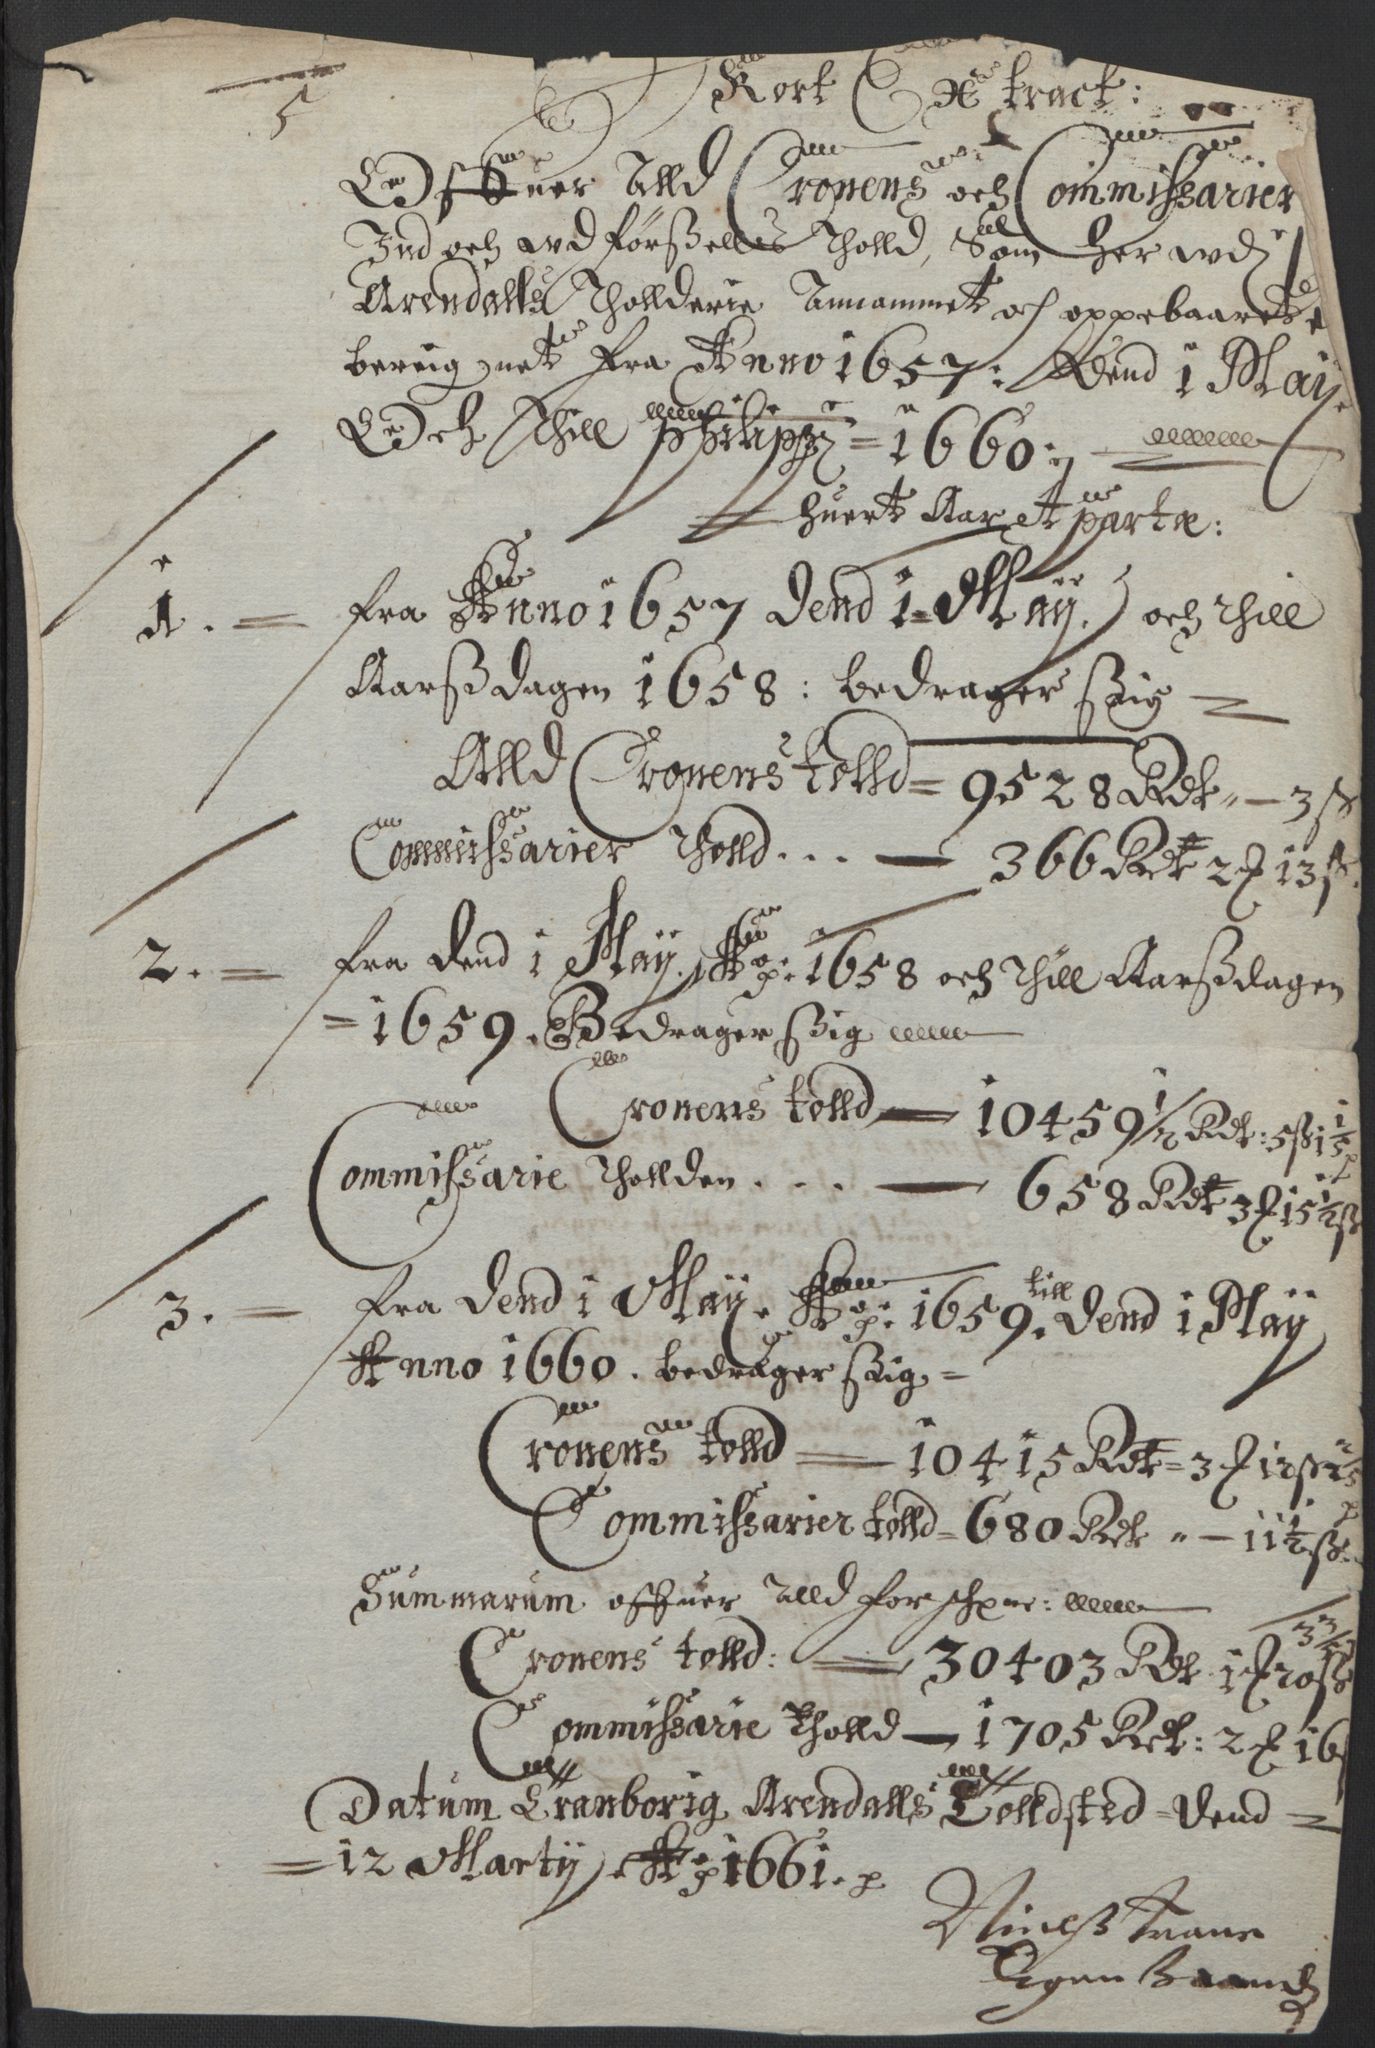 5
Kort Extract:
Offuer Alld Cronens och Commissarier
Ind och udførßells Tholld, Som her udi
Arendalls Thollderie Annammet och oppebaaret
bereignet fra Anno 1657: Dend 1 Maij
Och Thill Philippj = 1660:
= huert Aar et parte:
1. = fra Anno 1657 Dend 1 = Maij. och Thill
Aarßdagen 1658: bedrager ßig =
Alld Cronens tolld = 9528 Rdr " — 3 ß
Commissarier Tholld . . . — 366 Rdr 2 ʒ 13 ß.
2. = fra Dend 1 Maij. Ao: 1658 och Thill Aarßdagen
= 1659. Bedrager ßig
Cronens tolld — 10459 1/2 Rdr: 5 ß 1 1/5 p
Commissarie Thollden . . . — 658 Rdr 3 ʒ 15 1/2 ß
3. = fra Dend 1 Maij. Ao: 1659. till Dend 1 Maij
Anno 1660. bedrager ßig =
Cronens tolld — 10415 Rdr = 3 ʒ 12 ß 2/5 p
Commissarier tolld = 680 Rdr " — 11 1/2 ß.
Summarum offuer Alld for
Cronens tolld: — 30403 Rdr 1 ʒ 20 ß 3 3/5
Commissarie Tholld — 1705 Rdr: 2 ʒ 16 ß
Datum Tranborig Arendalls Tolldsted = Dend =
= 12 Martij. Ao: 1661. p
Nielß Trane
Egen Haand